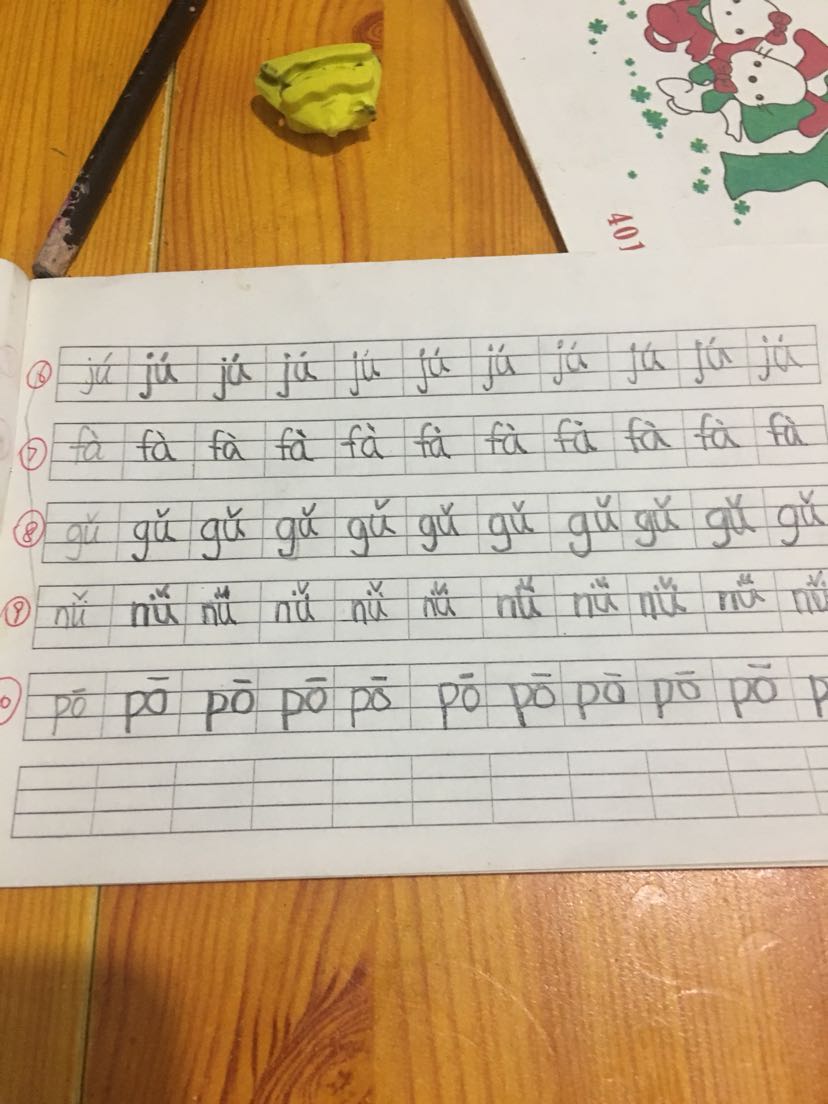 401
⑥ jú jú jú jú jú jú jú jú jú jú jú
⑦ fà fà fà fà fà fà fà fà fà fà fà
⑧ gǔ gǔ gǔ gǔ gǔ gǔ gǔ gǔ gǔ gǔ gǔ
⑨ nǚ nǚ nǚ nǚ nǚ nǚ nǚ nǚ nǚ nǚ nǚ
pō pō pō pō pō pō pō pō pō pō p